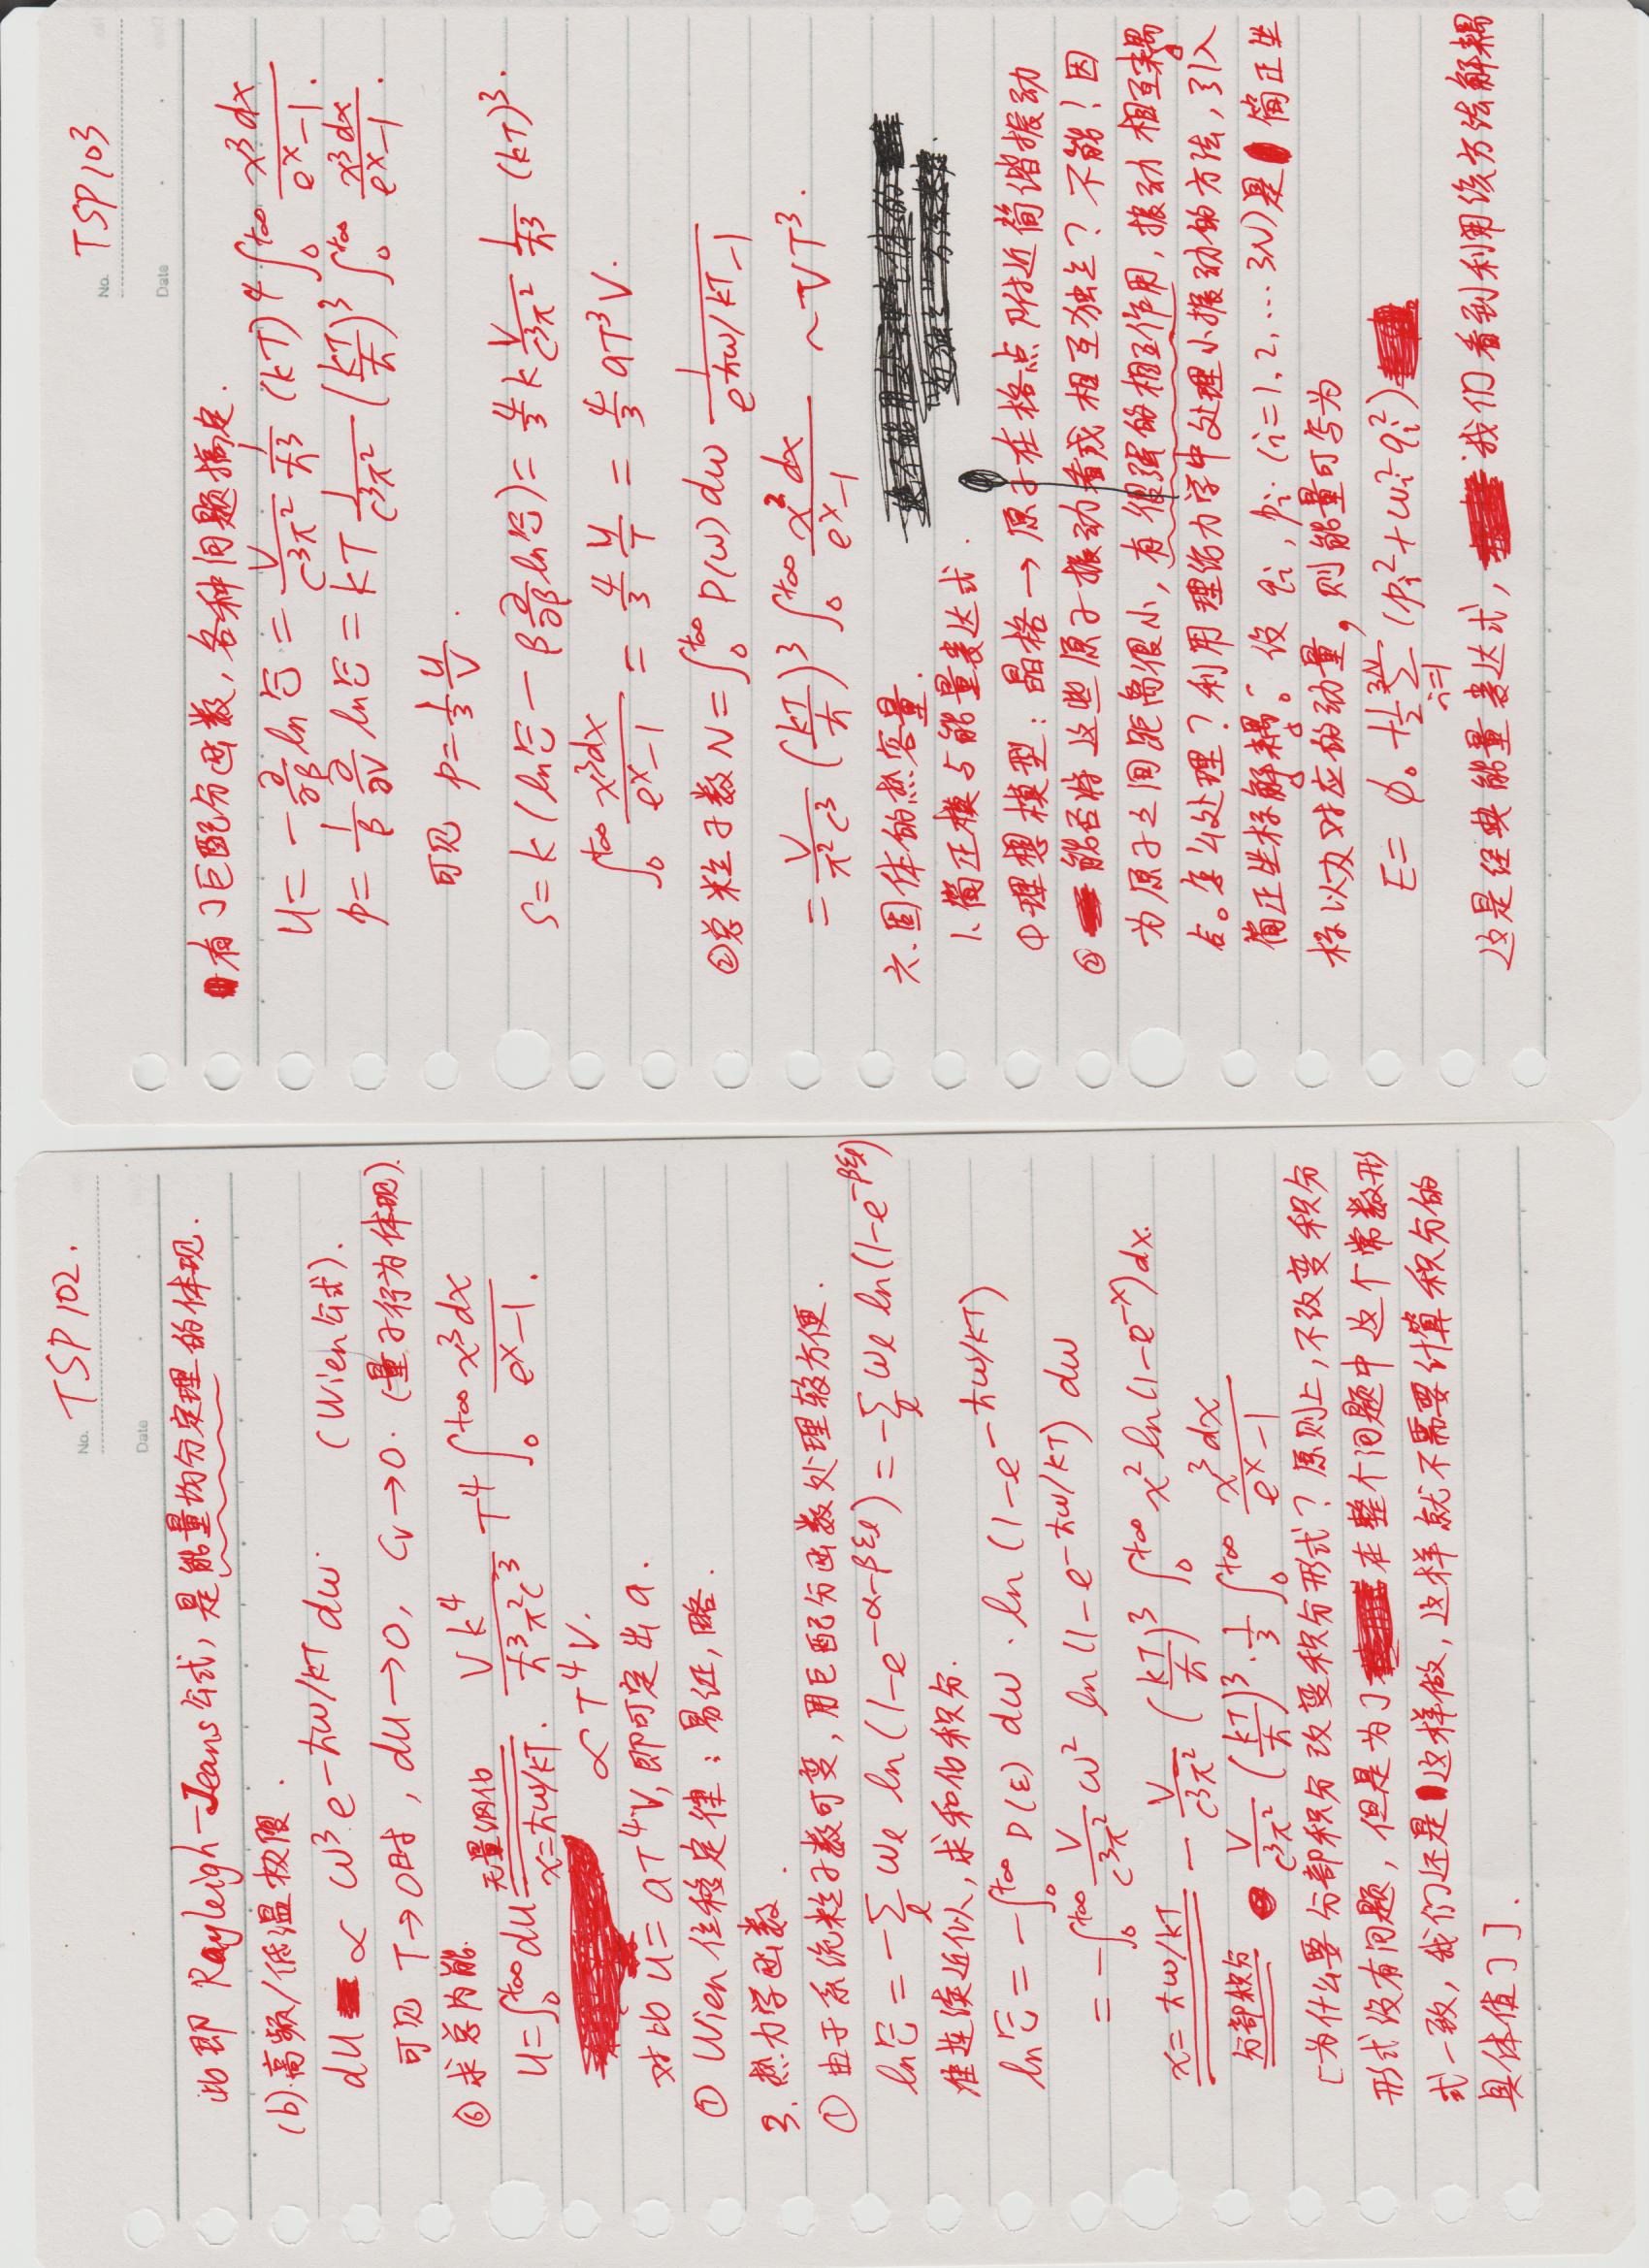 No. TSP102.
Date
此即 Rayleigh-Jeans公式, 是能量均分定理的体现.
(b).高频/低温极限.
dU ∝ ω³e^{-ħω/kT} dω. (Wien公式).
可见 T→0时, dU→0, Cv→0. (量子行为体现).
⑥ 求总内能.
U=∫₀^{+∞}dU 无量纲化 x=ħω/kT. Vk⁴/ħ³π²c³ T⁴ ∫₀^{+∞} x³dx/(eˣ-1).
∝T⁴V.
对比 U=aT⁴V, 即可定出a.
⑦ Wien 位移定律: 易证, 略.
3. 热力学函数.
① 由于系统粒子数可变, 用巨配分函数处理较方便.
lnΞ = -∑_l ω_l ln(1-e^{-α-βε_l}) = -∑_l ω_l ln(1-e^{-βε_l})
准连续近似, 求和化积分.
lnΞ = -∫₀^{+∞} D(ε) dω · ln(1-e^{-ħω/kT})
= -∫₀^{+∞} V/c³π² ω² ln(1-e^{-ħω/kT}) dω
x=ħω/kT -V/c³π² (kT/ħ)³ ∫₀^{+∞} x² ln(1-e^{-x})dx.
分部积分 V/c³π² (kT/ħ)³·1/3 ∫₀^{+∞} x³dx/(eˣ-1)
[为什么要分部积分改变积分形式? 原则上, 不改变积分
形式没有问题, 但是为了在整个问题中这个常数形
式一致, 我们还是这样做, 这样就不需要计算积分的
具体值了].
No. TSP103
Date
有了巨配分函数, 各种问题搞定.
U= -∂/∂β lnΞ = V/c³π² 1/ħ³ (kT)⁴ ∫₀^{+∞} x³dx/(eˣ-1).
p= 1/β ∂/∂V lnΞ = kT 1/c³π² (kT/ħ)³ ∫₀^{+∞} x³dx/(eˣ-1).
可见 p=1/3 U/V.
S=k(lnΞ - β ∂/∂β lnΞ)= 4/3 k V/c³π² 1/ħ³ (kT)³.
∫₀^{+∞} x³dx/(eˣ-1) = 4/3 U/T = 4/3 aT³V.
②总粒子数 N=∫₀^{+∞} D(ω)dω 1/(e^{ħω/kT}-1)
= V/π²c³ (kT/ħ)³ ∫₀^{+∞} x²dx/(eˣ-1) ~VT³.
六.固体的热容量.
1.简正模与能量表达式.
①理想模型: 晶格→原子在格点附近简谐振动
② 能否将这些原子振动看成相互独立? 不能! 因
为原子之间距离很小, 有很强的相互作用, 振动相互耦
合。怎么处理? 利用理论力学中处理小振动的方法, 引入
简正坐标解耦。设 qi, pi. (i=1,2,...3N)是简正坐
标以及对应的动量, 则能量可写为
E= φ₀ +1/2 ∑_{i=1}^{3N} (pi²+ωi²qi²)
这是经典能量表达式, 我们看到利用该方法解耦